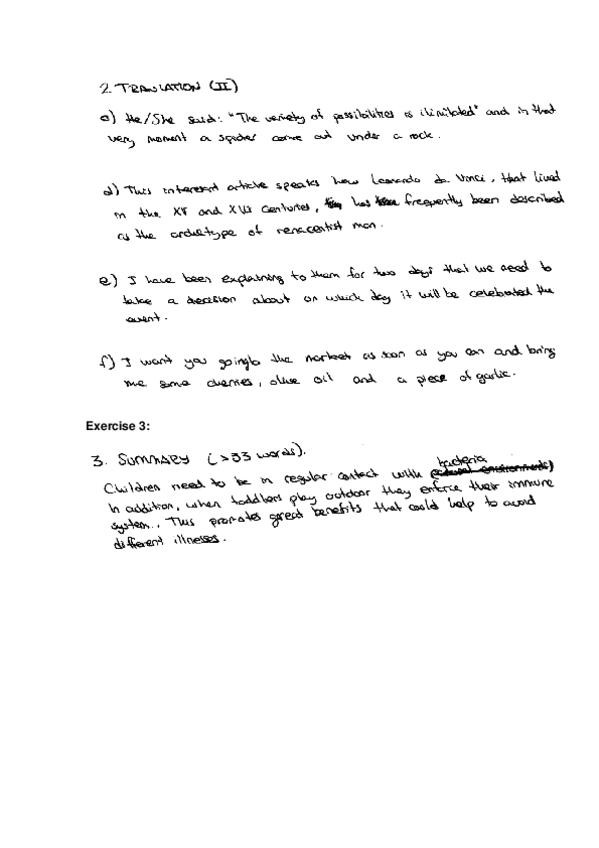 2. TRANSLATION (II)
c) He/She said: "The variety of possibilities is ilimitated" and in that
very moment a spider come out under a rock.
d) This interesant article speaks how Leonardo da Vinci, that lived
in the XV and XVI centuries, has frequently been described
as the archetype of renacentist man.
e) I have been explaining to them for two days that we need to
take a decision about on which day it will be celebrated the
event.
f) I want you going to the market as soon as you can and bring
me some cherries, olive oil and a piece of garlic.
Exercise 3:
3. SUMMARY (>33 words).
Children need to be in regular contact with bacteria
In addition, when toddlers play outdoor they enforce their immune
system. This promotes great benefits that could help to avoid
different illnesses.